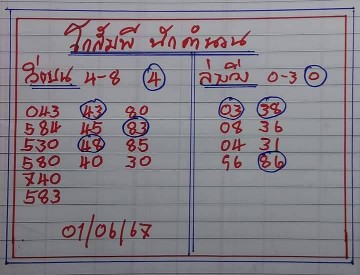 โกสัมพี นักคำนวน
วิ่งบน 4-8 4
043 43 80
584 45 83
530 48 85
580 40 30
740
583
01/06/67
ล่าง 0-3 0
03 38
08 36
04 31
96 86